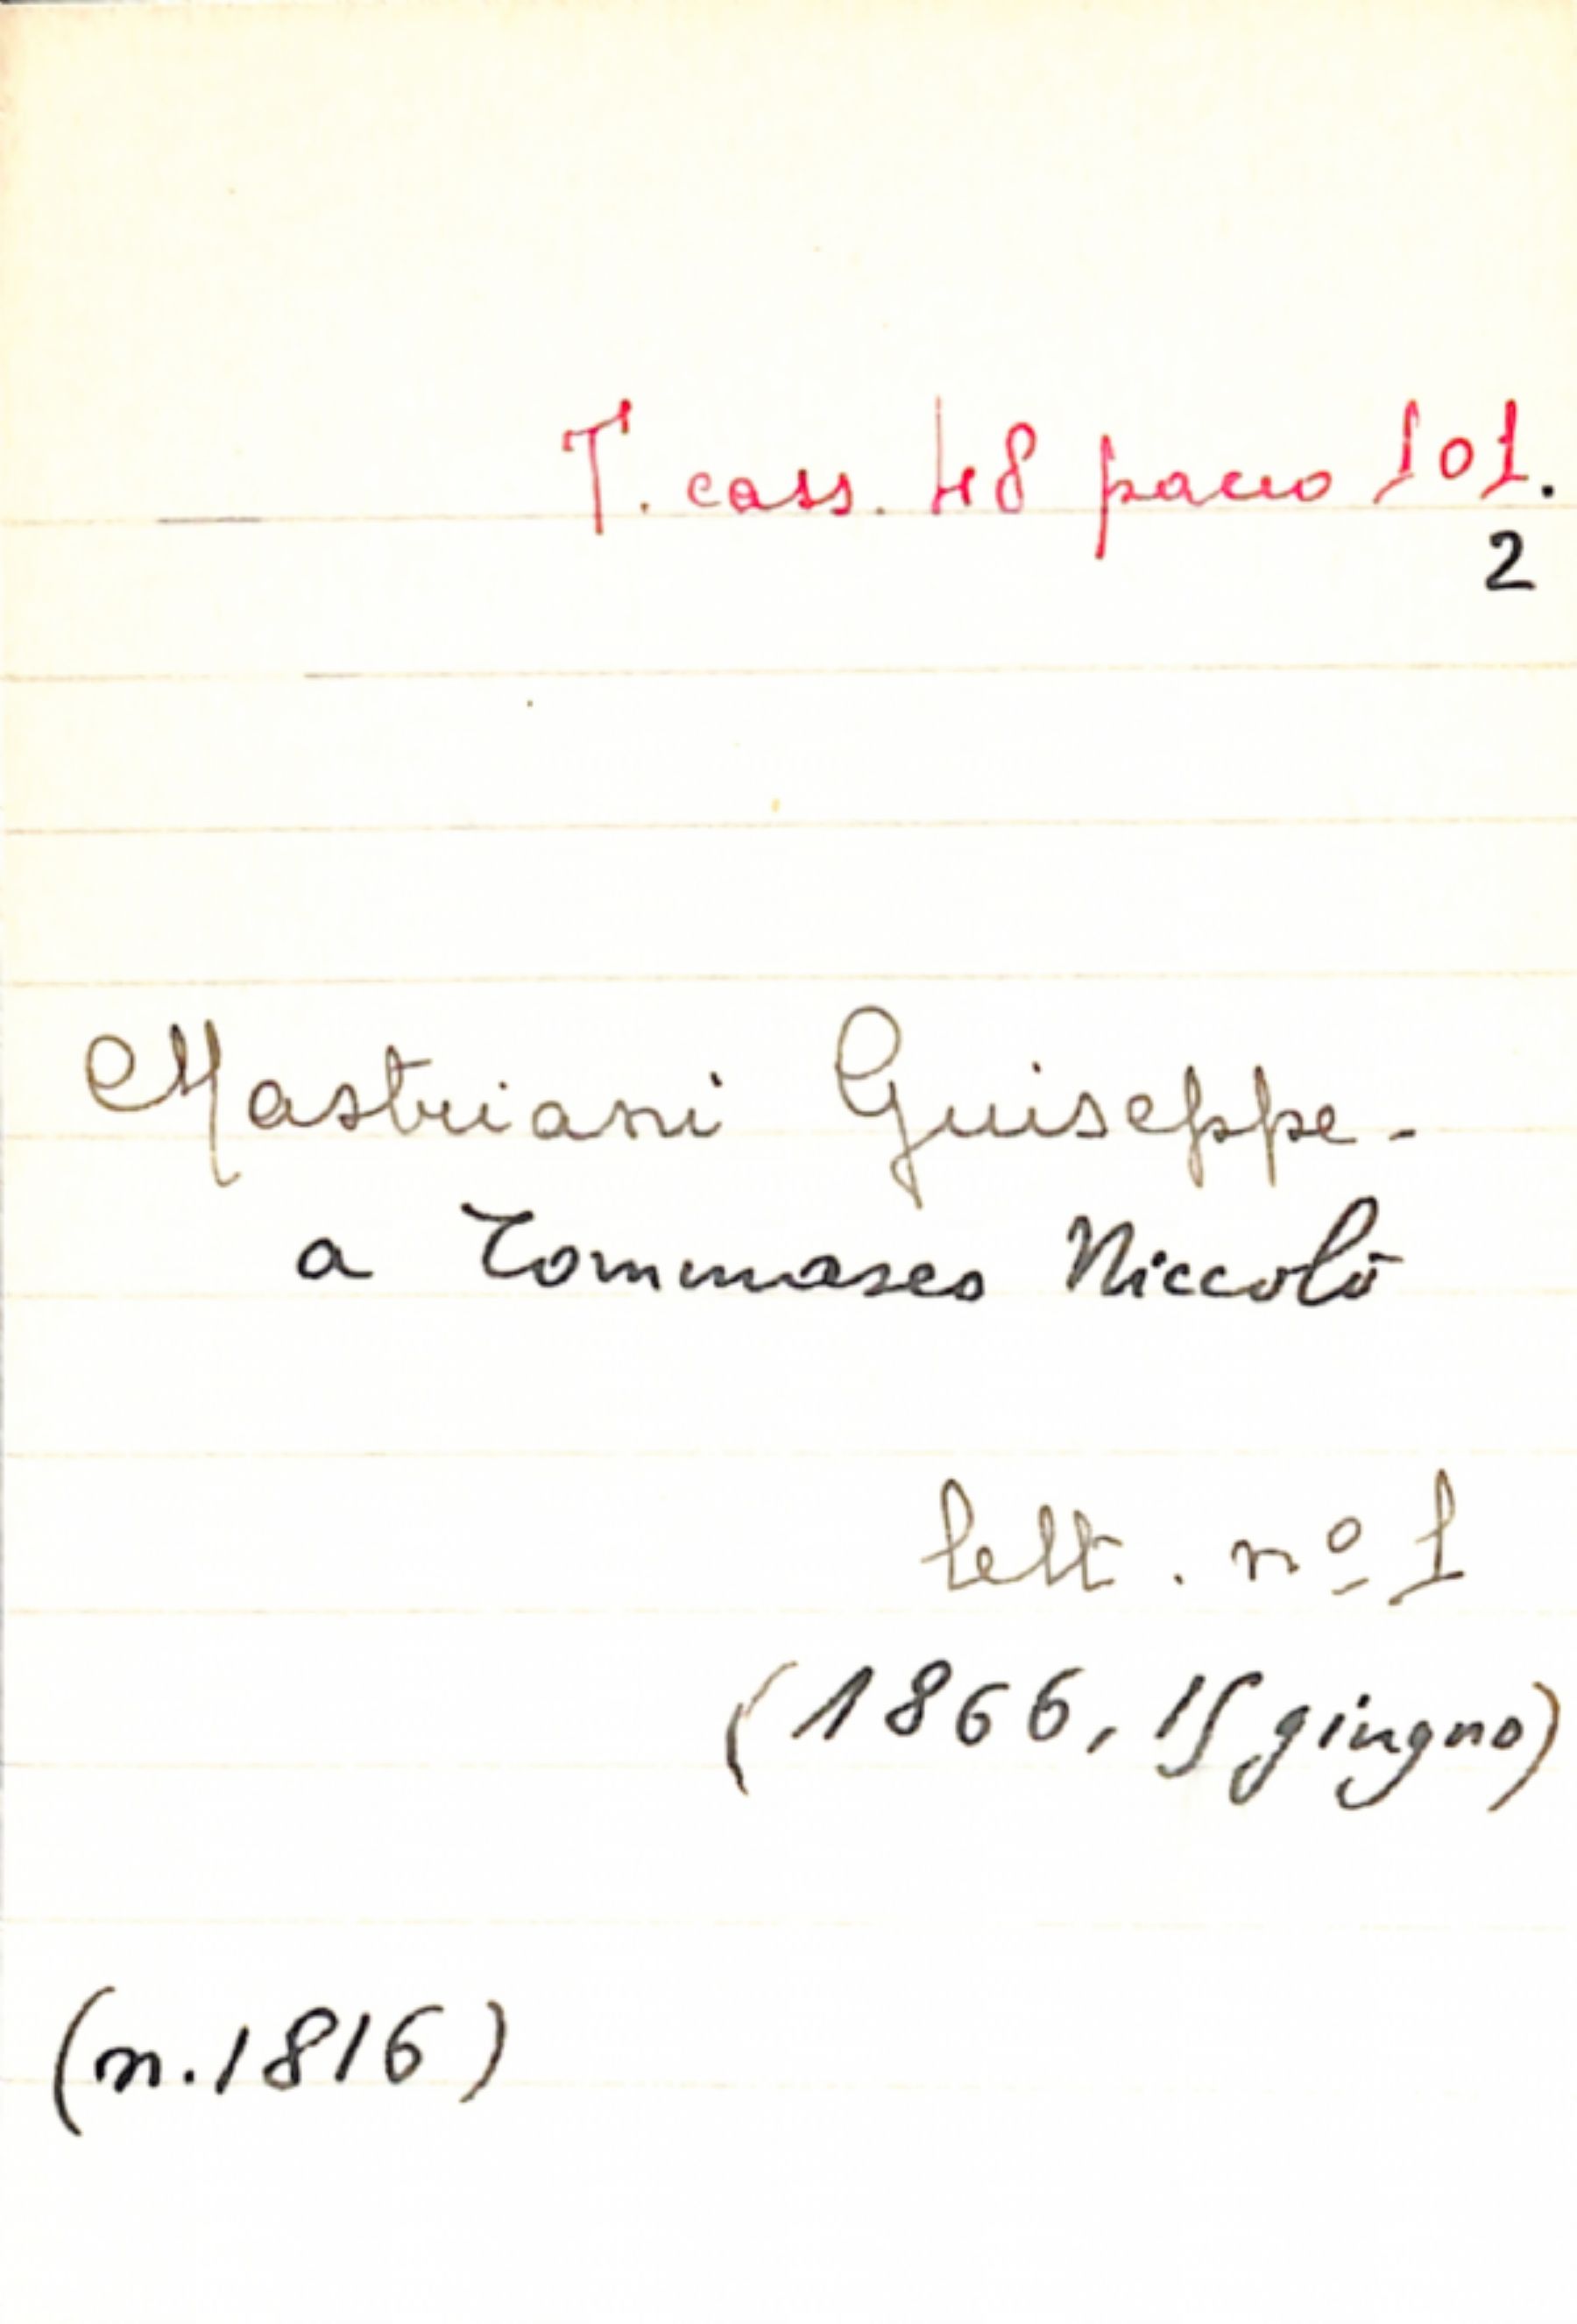 T. cass. 48 pacco 101.
2
Mastriani Giuseppe -
a Tommaseo Niccolò
lett. nº 1
(1866, 15 giugno)
(n. 1816)